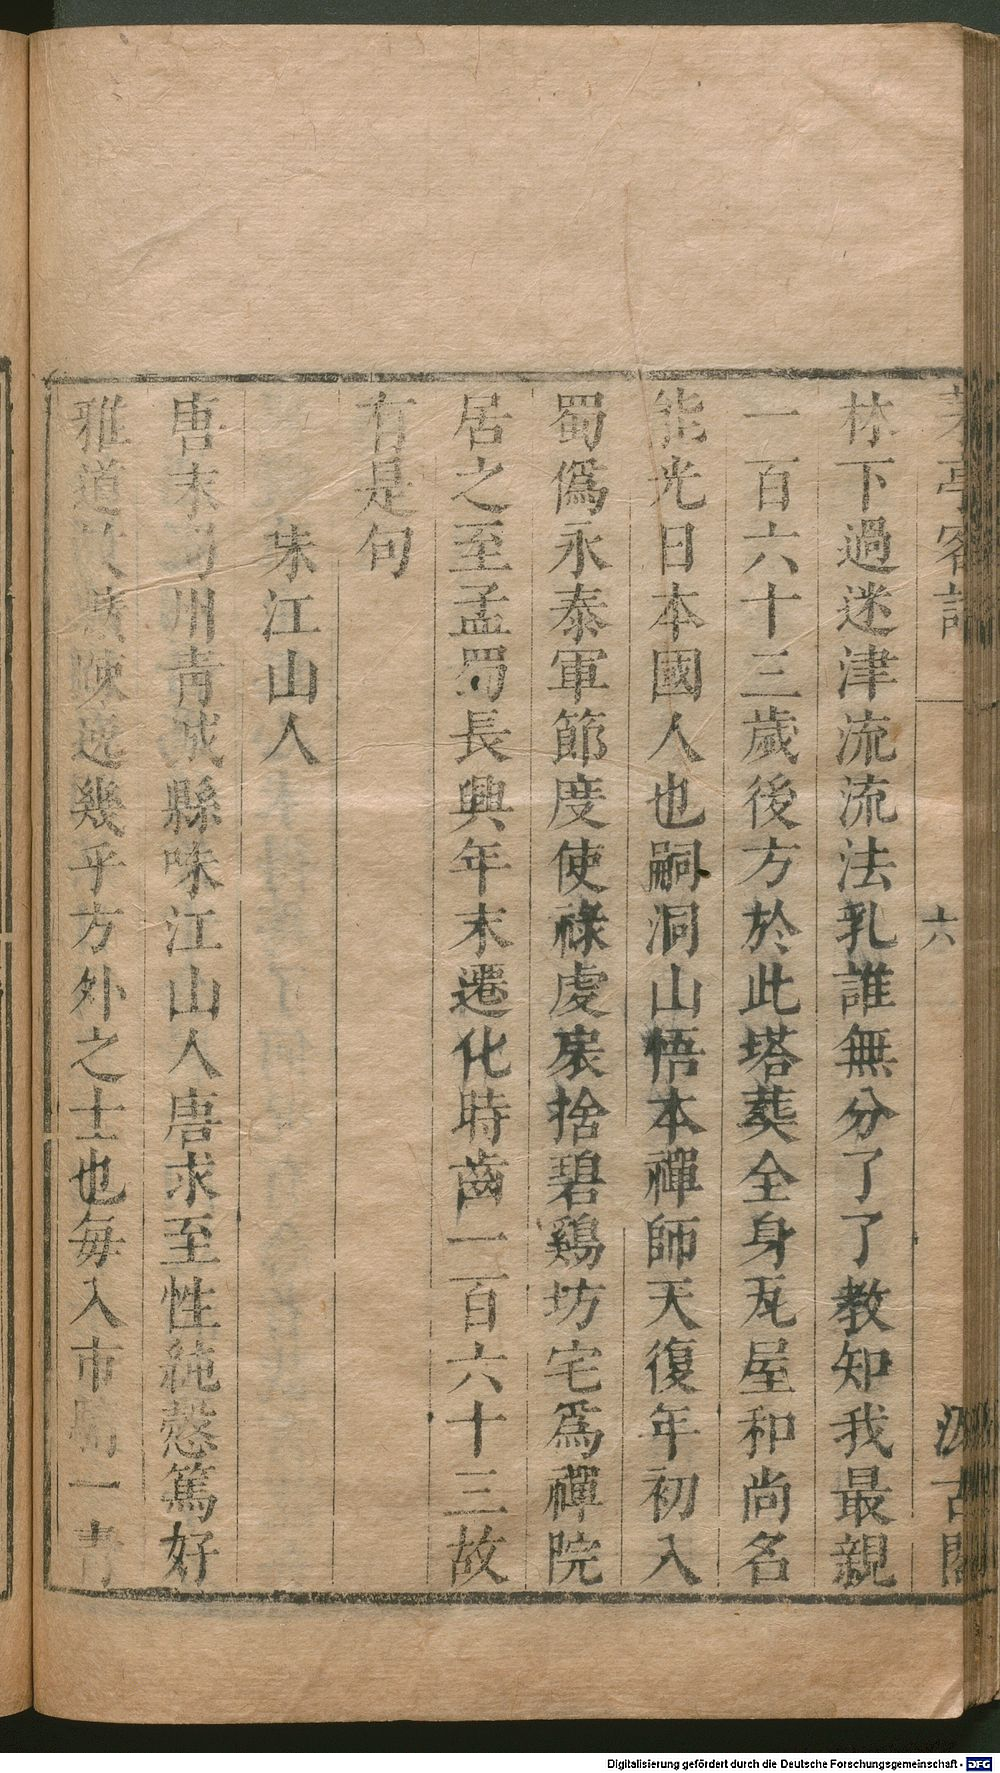 茅亭客話 六 汲古閣
林下過迷津流流法乳誰無分了了教知我最親
一百六十三歲後方於此塔葬全身瓦屋和尚名
能光日本國人也嗣洞山悟本禪師天復年初入
蜀僞永泰軍節度使祿虔扆捨碧鷄坊宅爲禪院
居之至孟蜀長興年末遷化時齒一百六十三故
有是句
味江山人
唐末蜀州青城縣味江山人唐求至性純慤篤好
雅道放曠疎逸幾乎方外之士也每入市騎一青
Digitalisierung gefördert durch die Deutsche Forschungsgemeinschaft - DFG